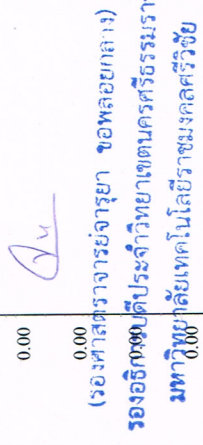 0.00
0.00
(รองศาสตราจารย์จารุยา ขอพลอยกลาง)
0.00
รองอธิการบดีประจำวิทยาเขตนครศรีธรรมรา
0.00
มหาวิทยาลัยเทคโนโลยีราชมงคลศรีวิชัย